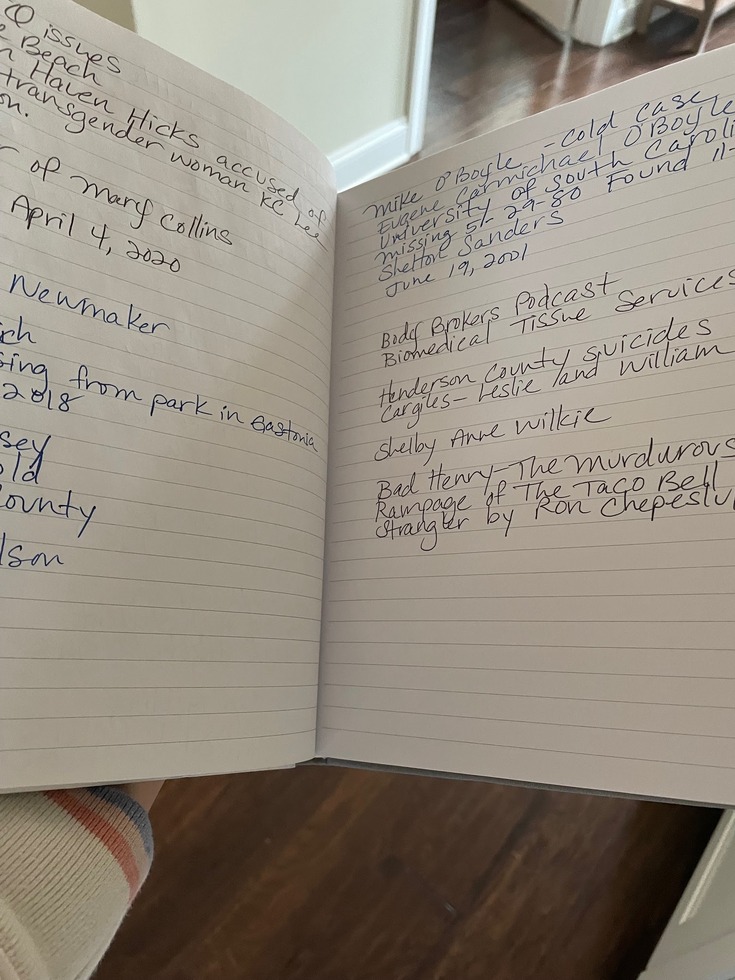 Q issues
e Beach
n Haven Hicks accused of
transgender woman KC Lee
on.
r of mary Collins
April 4, 2020
Newmaker
ich
sing from park in Gastonia
2018
sey
old
County
lson
Mike O'Boyle - cold case
Eugene Carmichael O'Boyle
University of South Caroli
missing 5/-29-80 Found 11-
Shelton Sanders
June 19, 2001
Body Brokers Podcast
Biomedical Tissue Services
Henderson County suicides
Cargiles - Leslie and William
Shelby Anne Wilkie
Bad Henry - The Murdurous
Rampage of The Taco Bell
Strangler by Ron Chepesiu